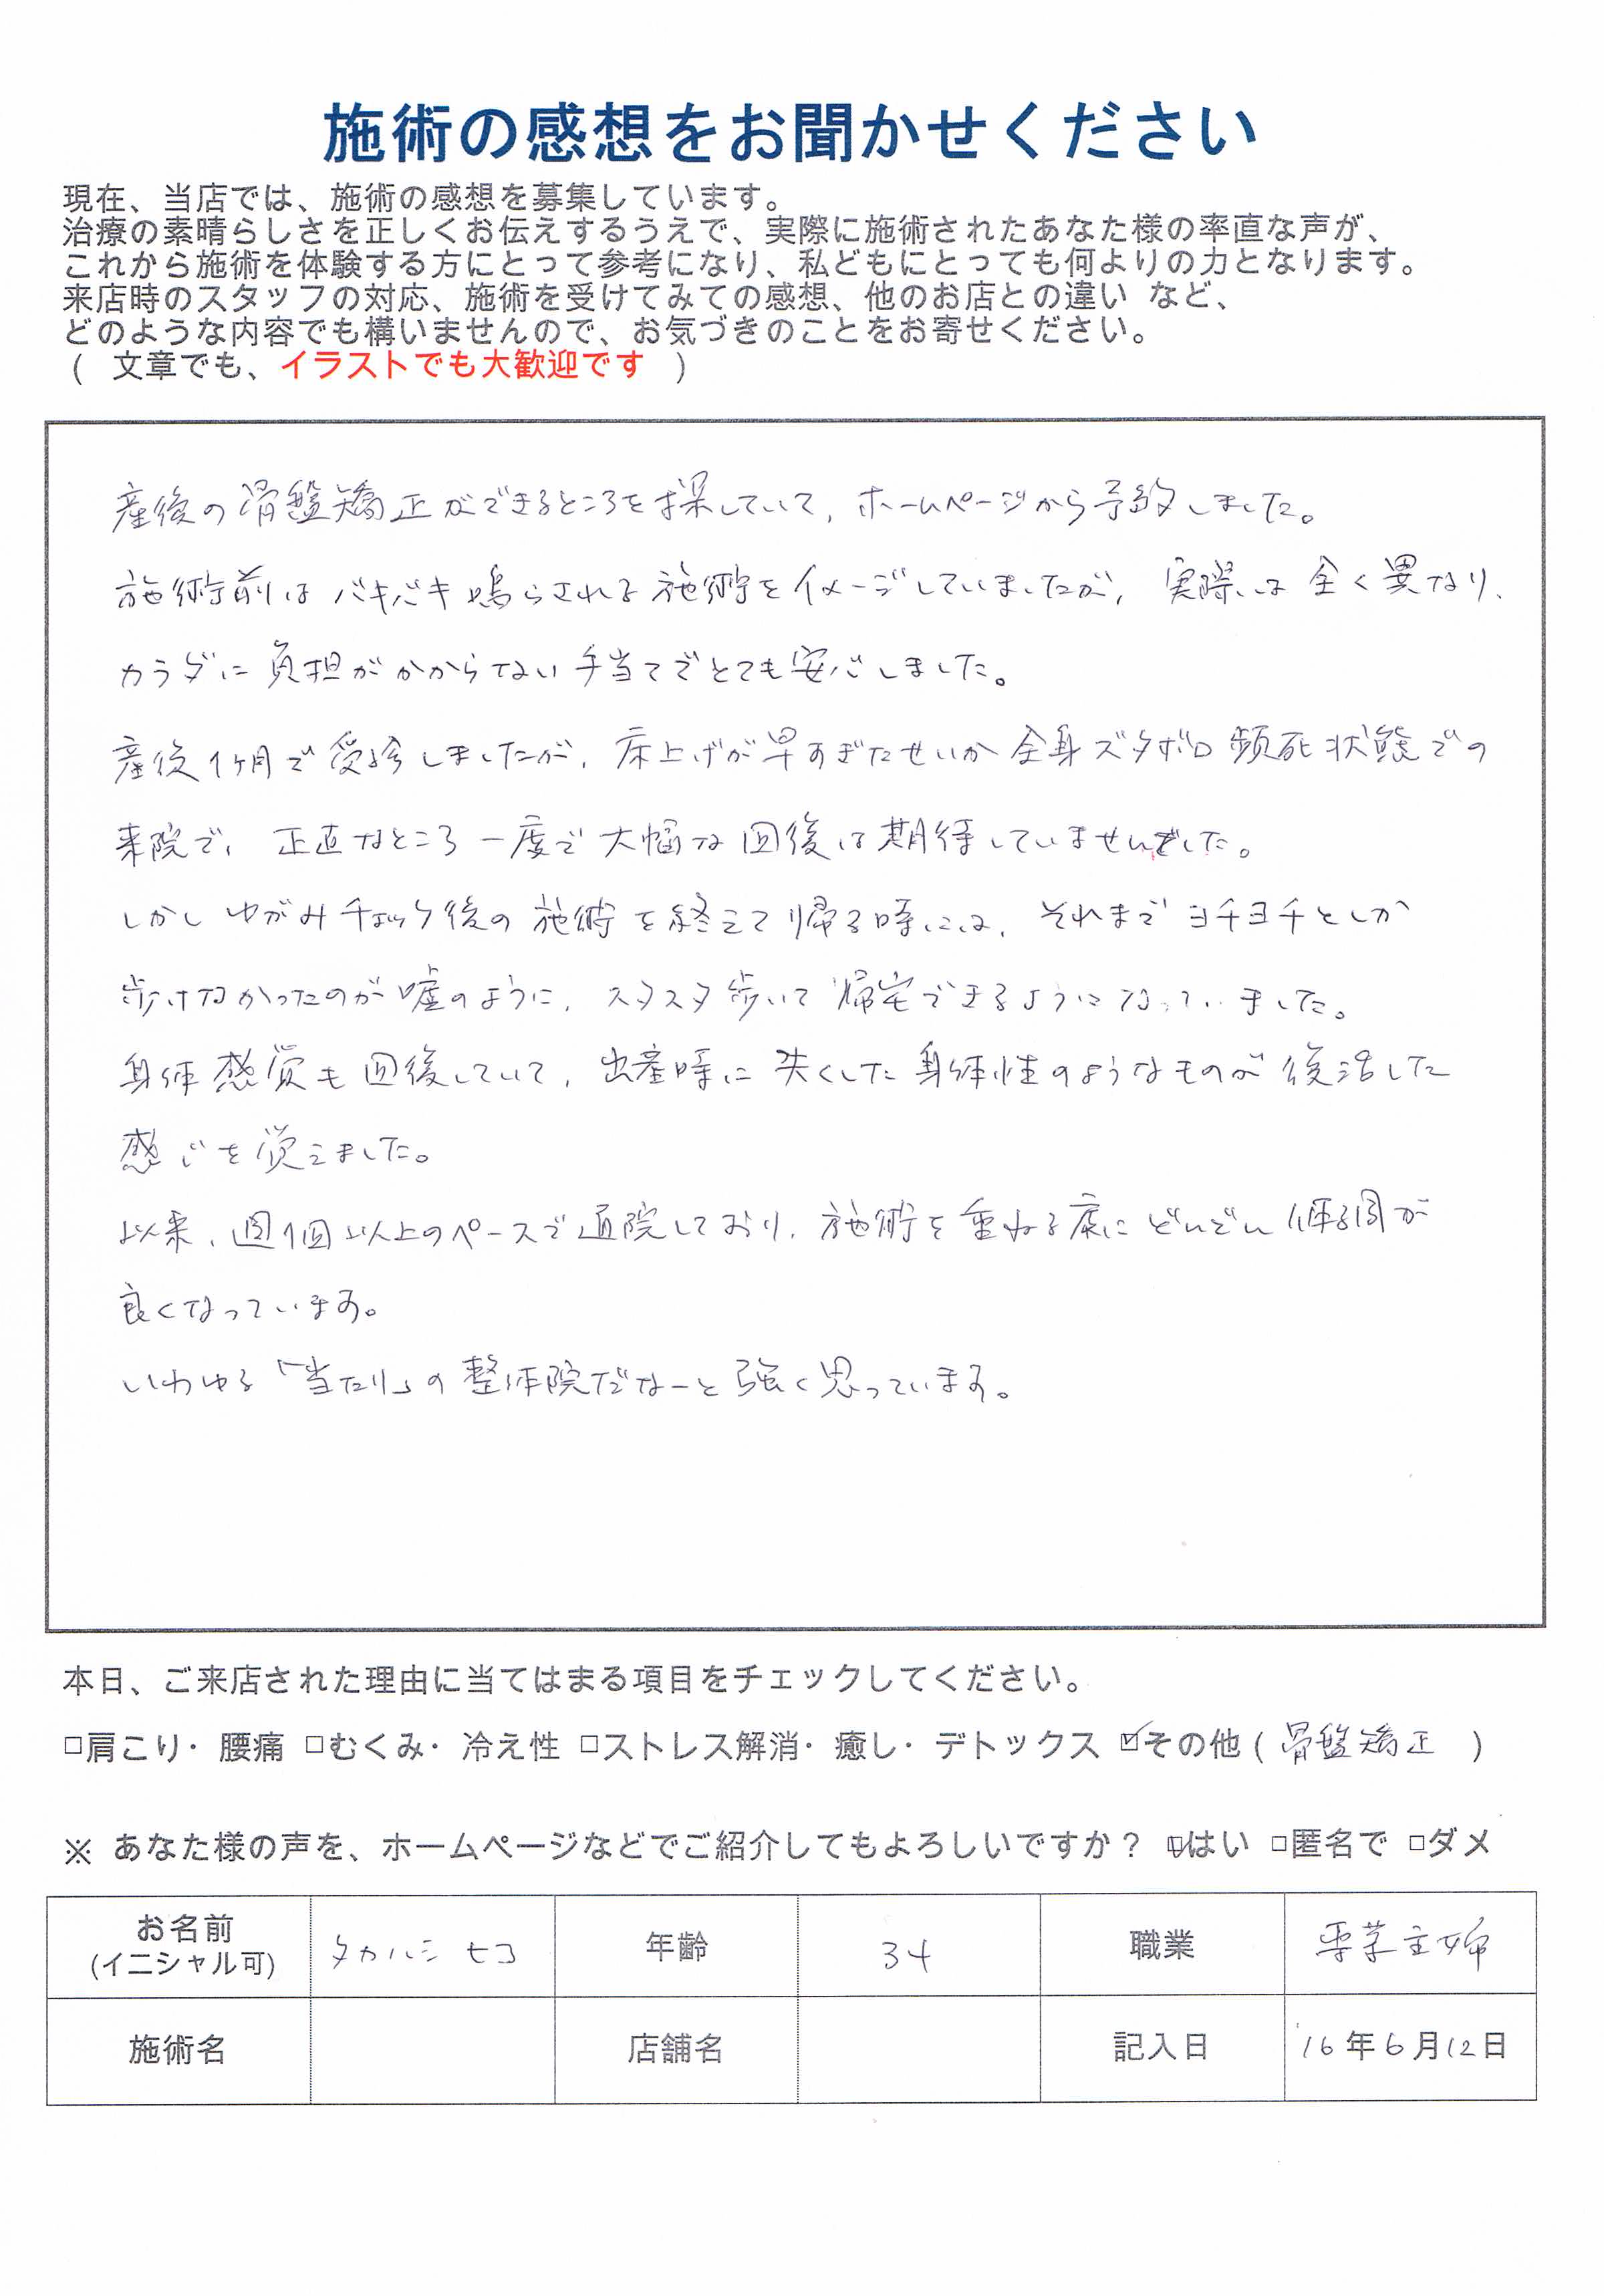 施術の感想をお聞かせください
現在、当店では、施術の感想を募集しています。
治療の素晴らしさを正しくお伝えするうえで、実際に施術されたあなた様の率直な声が、
これから施術を体験する方にとって参考になり、私どもにとっても何よりの力となります。
来店時のスタッフの対応、施術を受けてみての感想、他のお店との違い など、
どのような内容でも構いませんので、お気づきのことをお寄せください。
( 文章でも、イラストでも大歓迎です )
産後の骨盤矯正ができるところを探していて、ホームページから予約しました。
施術前はバキバキ鳴らされる施術をイメージしていましたが、実際は全く異なり、
カラダに負担がかからない手当てでとても安心しました。
産後1ヶ月で受診しましたが、床上げが早すぎたせいか全身ズタボロ瀕死状態での
来院で、正直なところ一度で大幅な回復は期待していませんでした。
しかしゆがみチェック後の施術を終えて帰る時には、それまでヨチヨチとしか
歩けなかったのが嘘のように、スタスタ歩いて帰宅できるようになっていました。
身体感覚も回復していて、出産時に失くした身体性のようなものが復活した
感じを覚えました。
以来、週1回以上のペースで通院しており、施術を重ねる度にどんどん体調が
良くなっています。
いわゆる「当たり」の整体院だなーと強く思っています。
本日、ご来店された理由に当てはまる項目をチェックしてください。
□肩こり・腰痛 □むくみ・冷え性 □ストレス解消・癒し・デトックス ☑その他 ( 骨盤矯正 )
※ あなた様の声を、ホームページなどでご紹介してもよろしいですか？ ☑はい □匿名で □ダメ
お名前 タカハシ ヒコ 年齢 34 職業 専業主婦
(イニシャル可)
施術名 店舗名 記入日 '16年6月12日